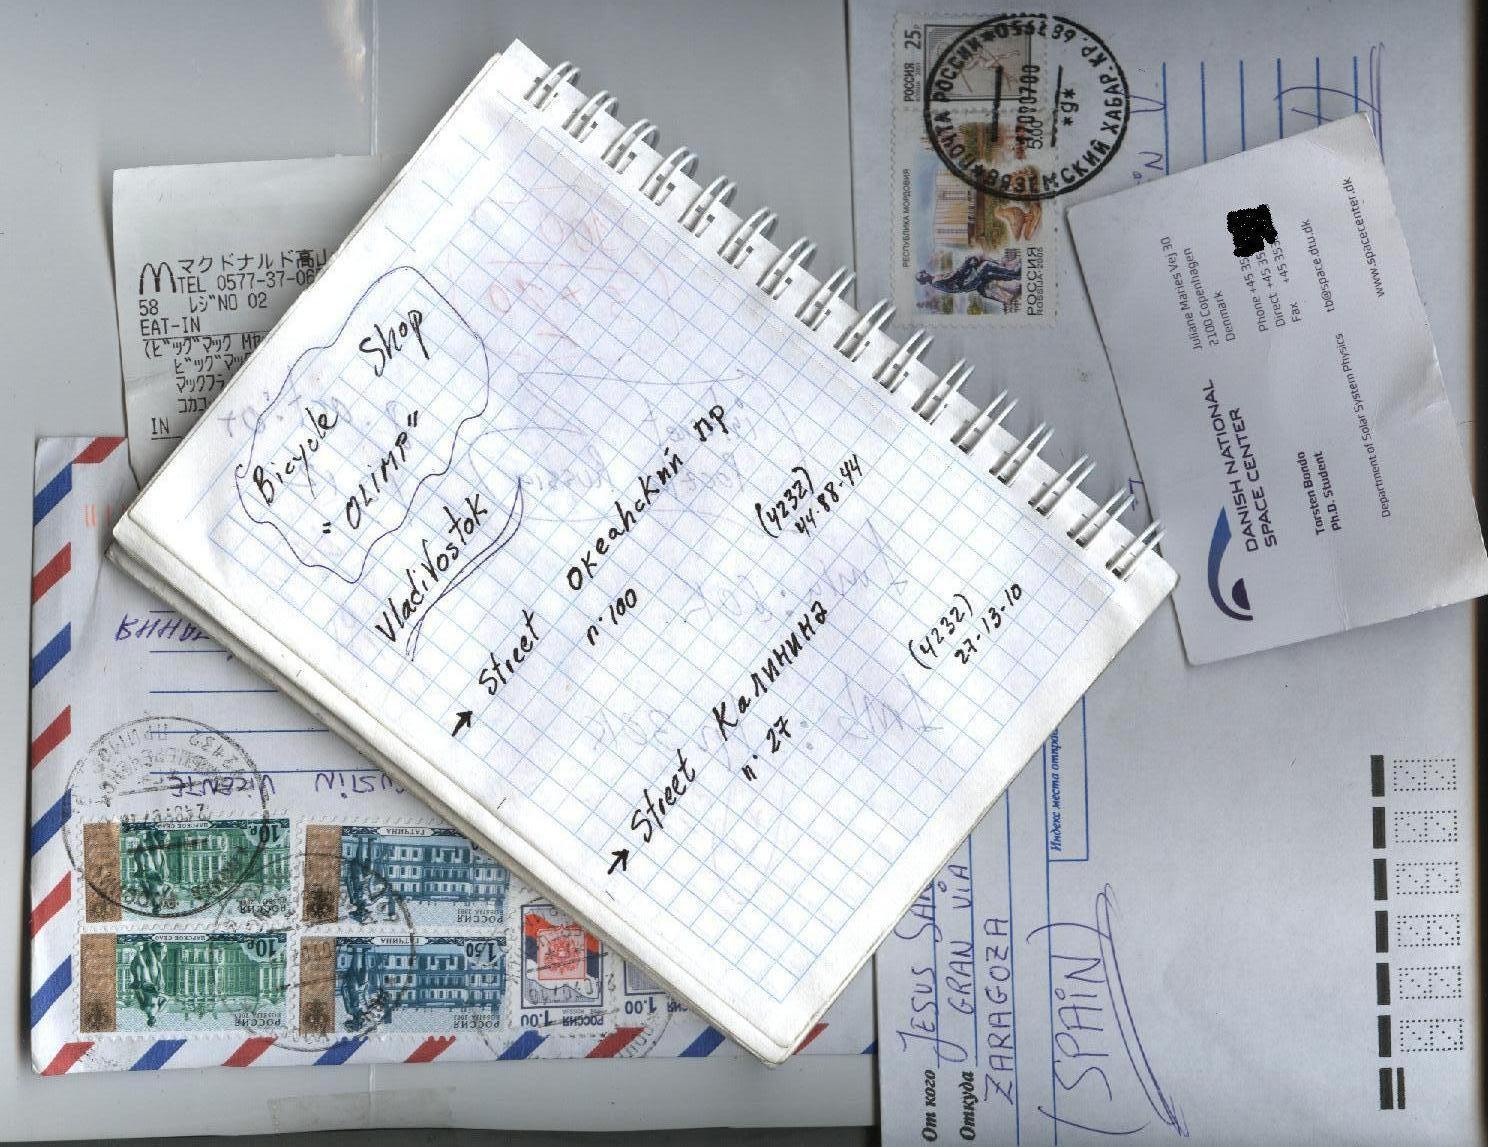 Bicycle Shop
"OLIMP"
Vladivostok
→ Street Океанский пр
n. 100
(4232)
44-88-44
→ Street Калинина
n. 27
(4232)
27-13-10
マクドナルド高山
TEL 0577-37-06
58 レジNO 02
EAT-IN
ビッグマック
IN
РОССИЯ 25р
ПОЧТА РОССИИ
ХАБАР.КР.
5.00
РЕСПУБЛИКА МОРДОВИЯ
РОССИЯ
ROSSIA 2006
DANISH NATIONAL
SPACE CENTER
Juliane Maries Vej 30
2100 Copenhagen
Denmark
Phone +45 35
Direct +45 35
Fax +45 353
tb@space.dtu.dk
www.spacecenter.dk
Torsten Bondo
Ph.D. Student
Department of Solar System Physics
VICENTE
10р ЦАРСКОЕ СЕЛО
РОССИЯ
ГАТЧИНА
РОССИЯ
10р ЦАРСКОЕ СЕЛО
РОССИЯ
1.50 ГАТЧИНА
РОССИЯ
РОССИЯ 1.00
1.00
Индекс места отправ
От кого JESUS
Откуда GRAN VIA
ZARAGOZA
(SPAIN)